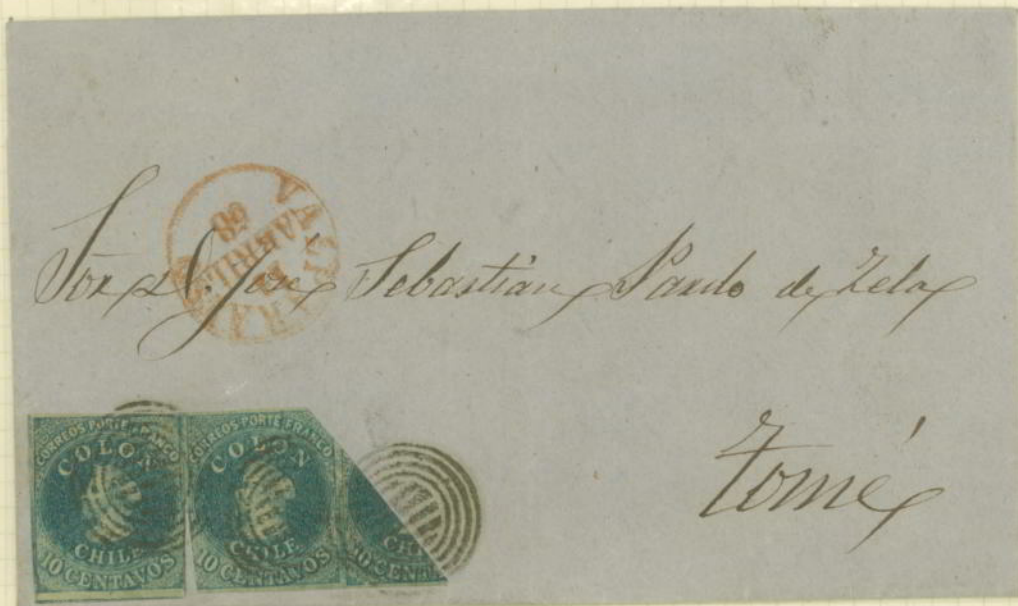 VALPARAISO
ABRIL
Sor D. José Sebastian Pardo de Zela
Tomé
CORREOS PORTE FRANCO
COLON
CHILE
10 CENTAVOS
CORREOS PORTE FRANCO
COLON
CHILE
10 CENTAVOS
CHI
10 CENT